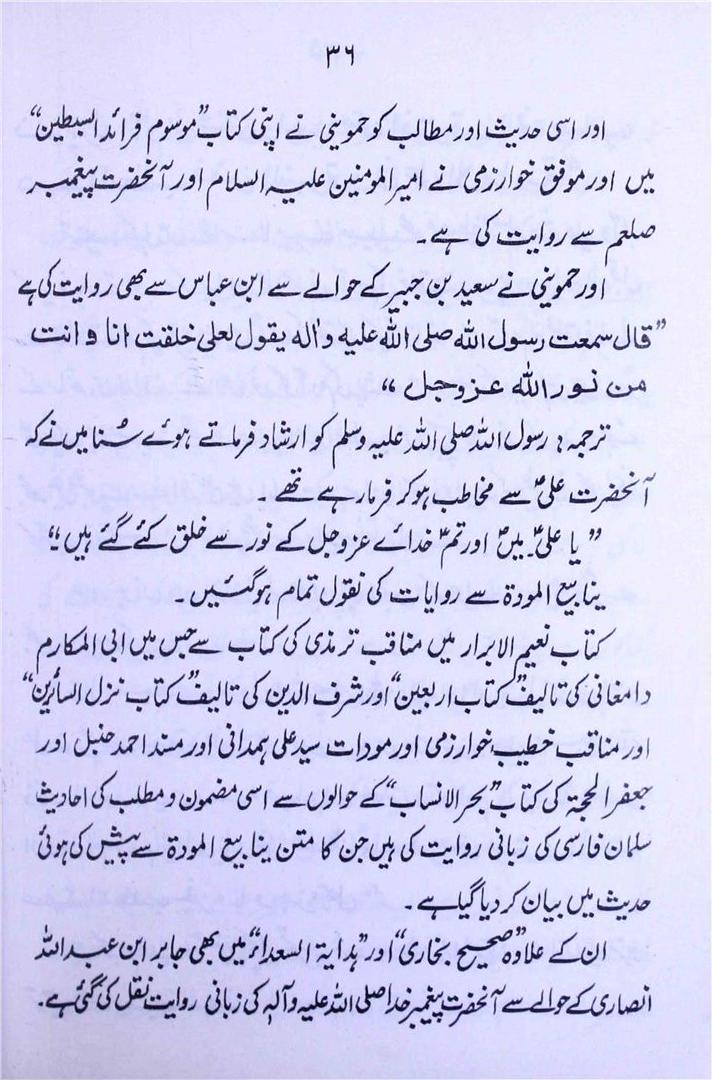 ۳۶
اور اسی حدیث اور مطالب کو حموینی نے اپنی کتاب ”موسوم فرائد السبطین“
میں اور موفق خوارزمی نے امیر المومنین علیہ السلام اور آنحضرت پیغمبر
صلعم سے روایت کی ہے۔
اور حموینی نے سعید بن جبیر کے حوالے سے ابن عباس سے بھی روایت کی ہے
”قال سمعت رسول الله صلی الله علیه واٰله یقول لعلی خلقت انا وانت
من نور الله عزوجل“
ترجمہ: رسول اللہ صلی اللہ علیہ وسلم کو ارشاد فرماتے ہوئے سُنا میں نے کہ
آنحضرت علیؑ سے مخاطب ہو کر فرما رہے تھے
”یا علیؑ۔ میںؐ اور تمؑ خدائے عزوجل کے نور سے خلق کئے گئے ہیں“
ینابیع المودۃ سے روایات کی نقول تمام ہوگئیں۔
کتاب نعیم الابرار میں مناقب ترمذی کی کتاب سے جس میں ابی المکارم
دامغانی کی تالیف ”کتاب اربعین“ اور شرف الدین کی تالیف ”کتاب نزل السائرین“
اور مناقب خطیب خوارزمی اور مودات سید علی ہمدانی اور مسند احمد حنبل اور
جعفر الحجۃ کی کتاب ”بحر الانساب“ کے حوالوں سے اسی مضمون و مطلب کی احادیث
سلمان فارسی کی زبانی روایت کی ہیں جن کا متن ینابیع المودۃ سے پیش کی ہوئی
حدیث میں بیان کر دیا گیا ہے۔
ان کے علاوہ ”صحیح بخاری“ اور ”ہدایۃ السعداء“ میں بھی جابر ابن عبد اللہ
انصاری کے حوالے سے آنحضرت پیغمبر خدا صلی اللہ علیہ وآلہٖ کی زبانی روایت نقل کی گئی ہے۔